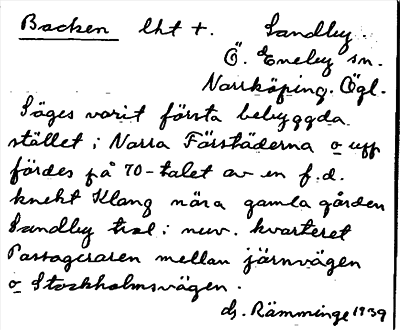 Backen lht +. Sandby.
Ö. Eneby sn.
Norrköping. Ögl.
Säges varit första bebyggda
stället i Norra Förstäderna o upp
fördes på 70-talet av en f.d.
knekt Klang nära gamla gården
Sandby trol. i nuv. kvarteret
Passageraren mellan järnvägen
o Stockholmsvägen.
dj. Rämminge 1939